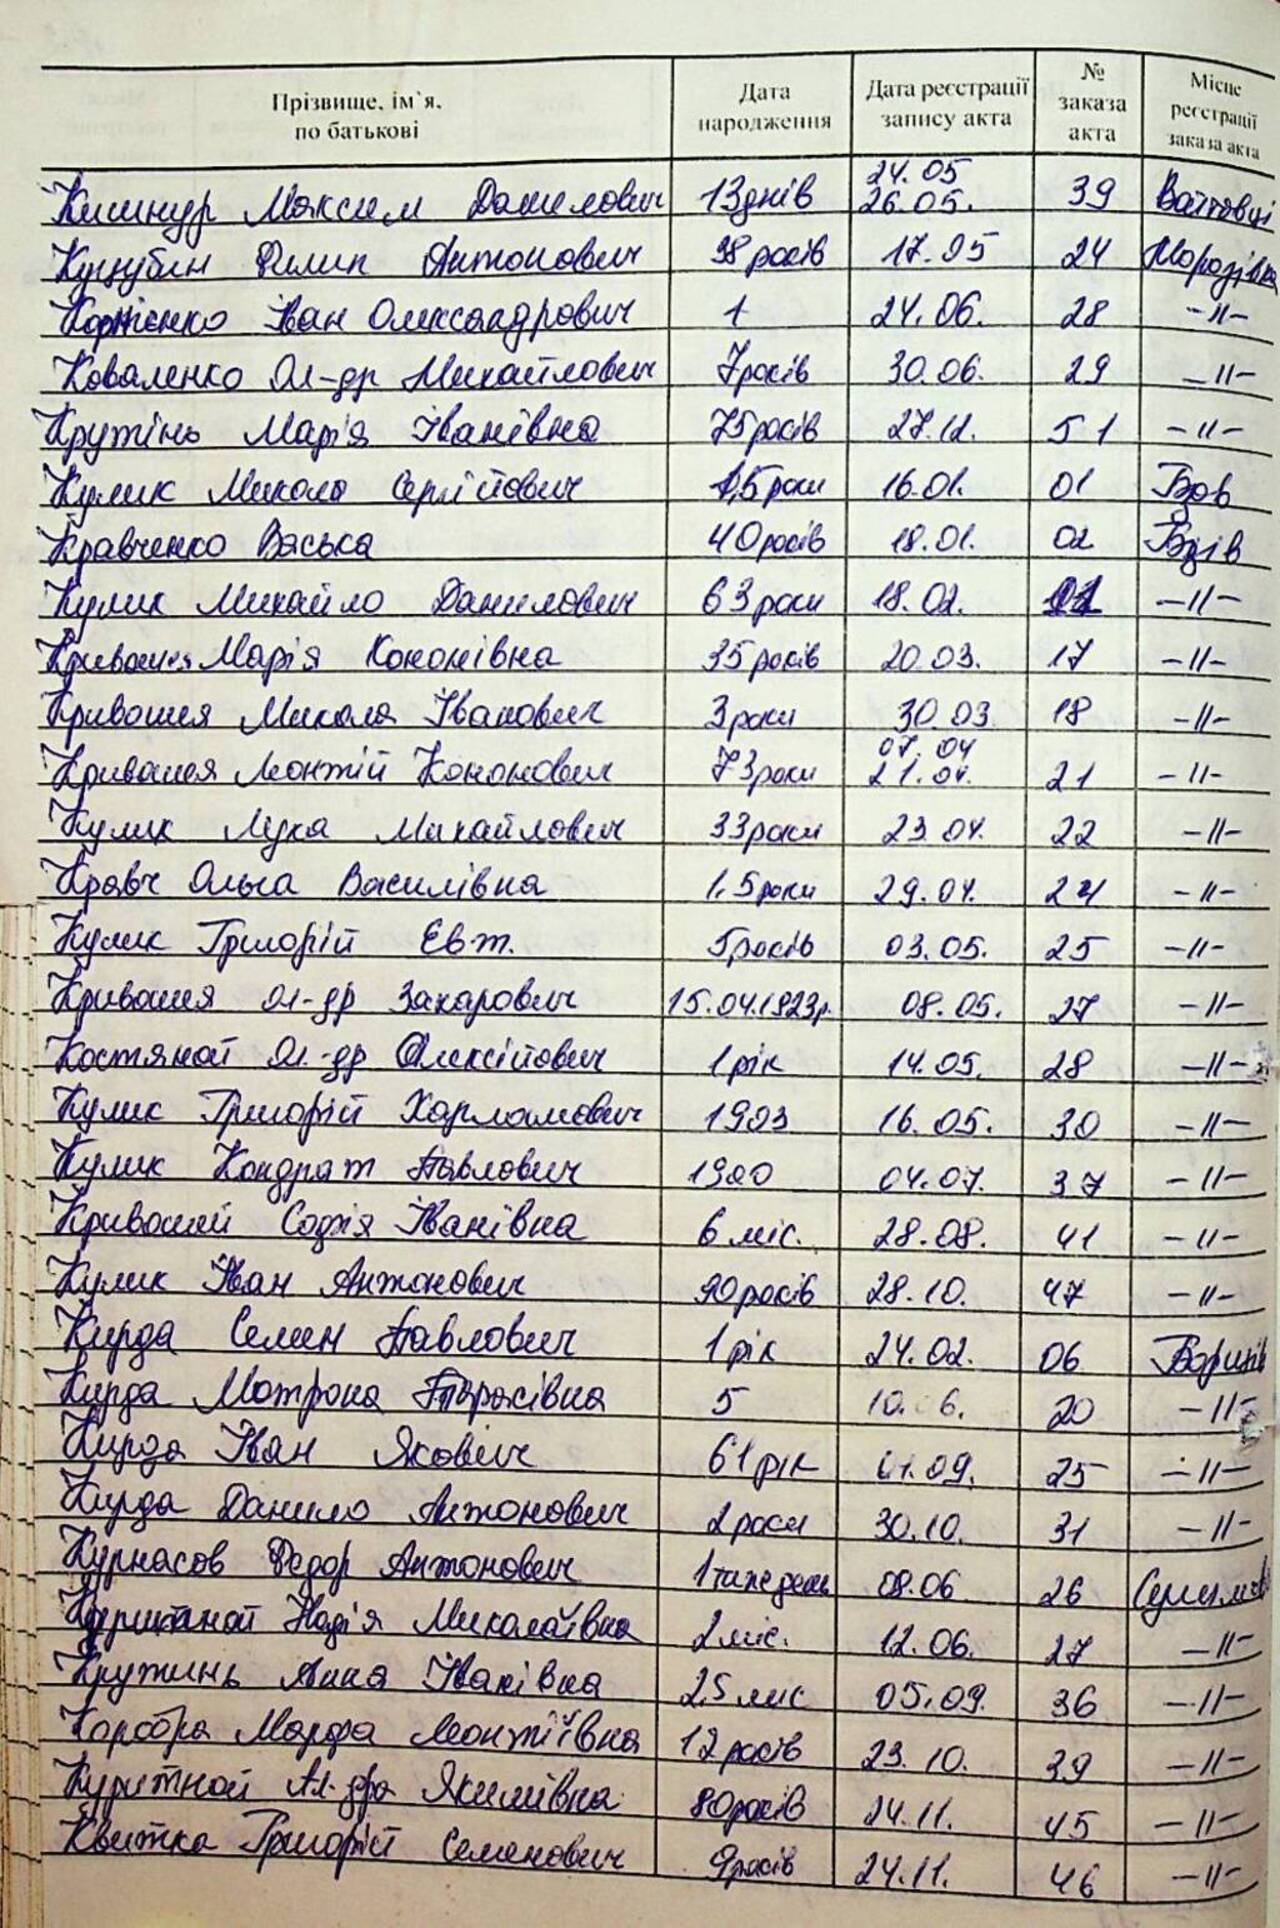 Прізвище, ім`я, по батькові | Дата народження | Дата реєстрації запису акта | № заказа акта | Місце реєстрації заказа акта
Кишнур Максим Данилович 13 днів 24.05 26.05. 39 Войтовці
Куцубин Филип Антонович 98 років 17.05 24 Морозівка
Корнієнко Іван Олександрович 1 24.06. 28 -//-
Коваленко Ол-др Михайлович 7 років 30.06. 29 -//-
Крутінь Марія Іванівна 75 років 27.12. 51 -//-
Кулик Микола Сергійович 1,5 роки 16.01. 01
Кравченко Васька 40 років 18.01. 02
Кулик Михайло Данилович 63 роки 18.02. -//-
Кривошея Марія Кононівна 35 років 20.03. 17 -//-
Кривошея Микола Іванович 3 роки 30.03. 18 -//-
Кривошея Леонтій Кононович 73 роки 07.04 21.04. 21 -//-
Кулик Лука Михайлович 33 роки 23.04. 22 -//-
Кравч Ольга Василівна 1,5 роки 29.04. 24 -//-
Кулик Григорій Евт. 5 років 03.05. 25 -//-
Кривошея Ол-др Захарович 15.04.1923р. 08.05. 27 -//-
Костяной Ол-др Олексійович 1 рік 14.05. 28 -//-
Кулик Григорій Харламович 1903 16.05. 30 -//-
Кулик Кондрат Павлович 1900 04.07. 37 -//-
Кривошей Софія Іванівна 6 міс. 28.08. 41 -//-
Кулик Іван Антонович 90 років 28.10. 47 -//-
Кирда Семен Павлович 1 рік 24.02. 06
Кирда Мотрона Тарасівна 5 10.06. 20 -//-
Кирда Іван Якович 61 рік 01.09. 25 -//-
Кирда Данило Антонович 2 роки 30.10. 31 -//-
Курнасов Федор Антонович 1 тиждень 08.06 26
Надія Миколаївна 2 міс. 12.06. 27 -//-
Крутинь Анна Іванівна 2,5 міс 05.09. 36 -//-
Марфа Леонтіївна 12 років 23.10. 39 -//-
Куритной Ал-дра Якимівна 80 років 24.11. 45 -//-
Квитка Григорій Семенович 9 років 24.11. 46 -//-